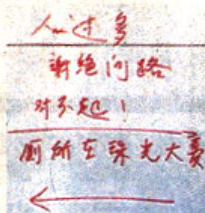 人过多
谢绝问路
对不起！
厕所在珠光大厦